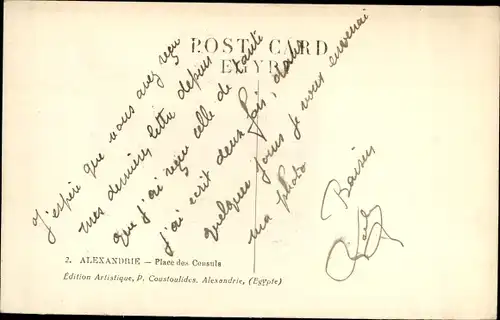 POST CARD
EGYPT
J'espère que vous avez reçu
mes dernières lettre depuis
que j'ai reçu celle de tante
j'ai écrit deux fois, dans
quelques jours je vous enverrai
ma photo
Baisers
2. ALEXANDRIE — Place des Consuls
Édition Artistique, P. Coustoulides. Alexandrie, (Egypte)